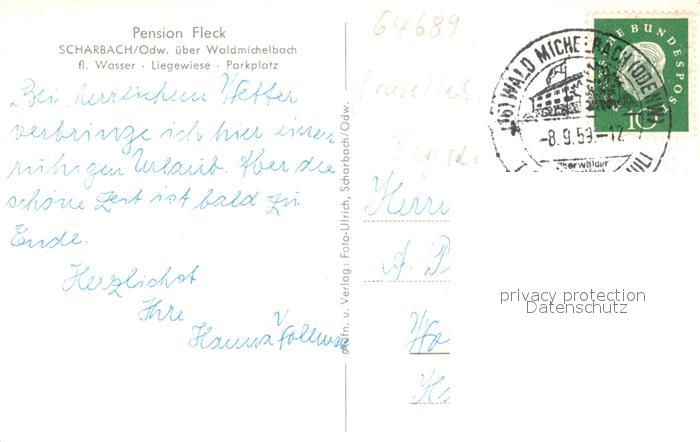 Pension Fleck
SCHARBACH/Odw. über Waldmichelbach
fl. Wasser · Liegewiese · Parkplatz
64689
Bei herrlichem Wetter
verbringe ich hier einen
ruhigen Urlaub. Aber die
schöne Zeit ist bald zu
Ende.
Herzlichst
Ihre
Hanna
Aufn. u. Verlag: Foto-Ulrich, Scharbach/Odw.
Herrn
A. P
(16) WALD MICHELBACH (ODENW)
-8.9.59.-12
Überwälder
DEUTSCHE BUNDESPOST
10
privacy protection
Datenschutz